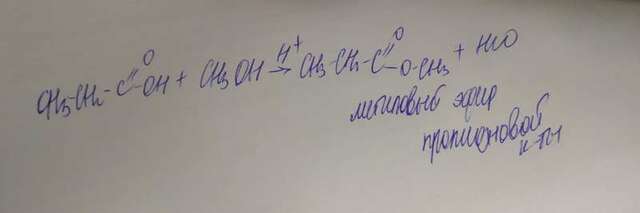 CH3-CH2-C(=O)-OH + CH3OH H+→ CH3-CH2-C(=O)-O-CH3 + H2O
метиловый эфир
пропионовой
к-ты